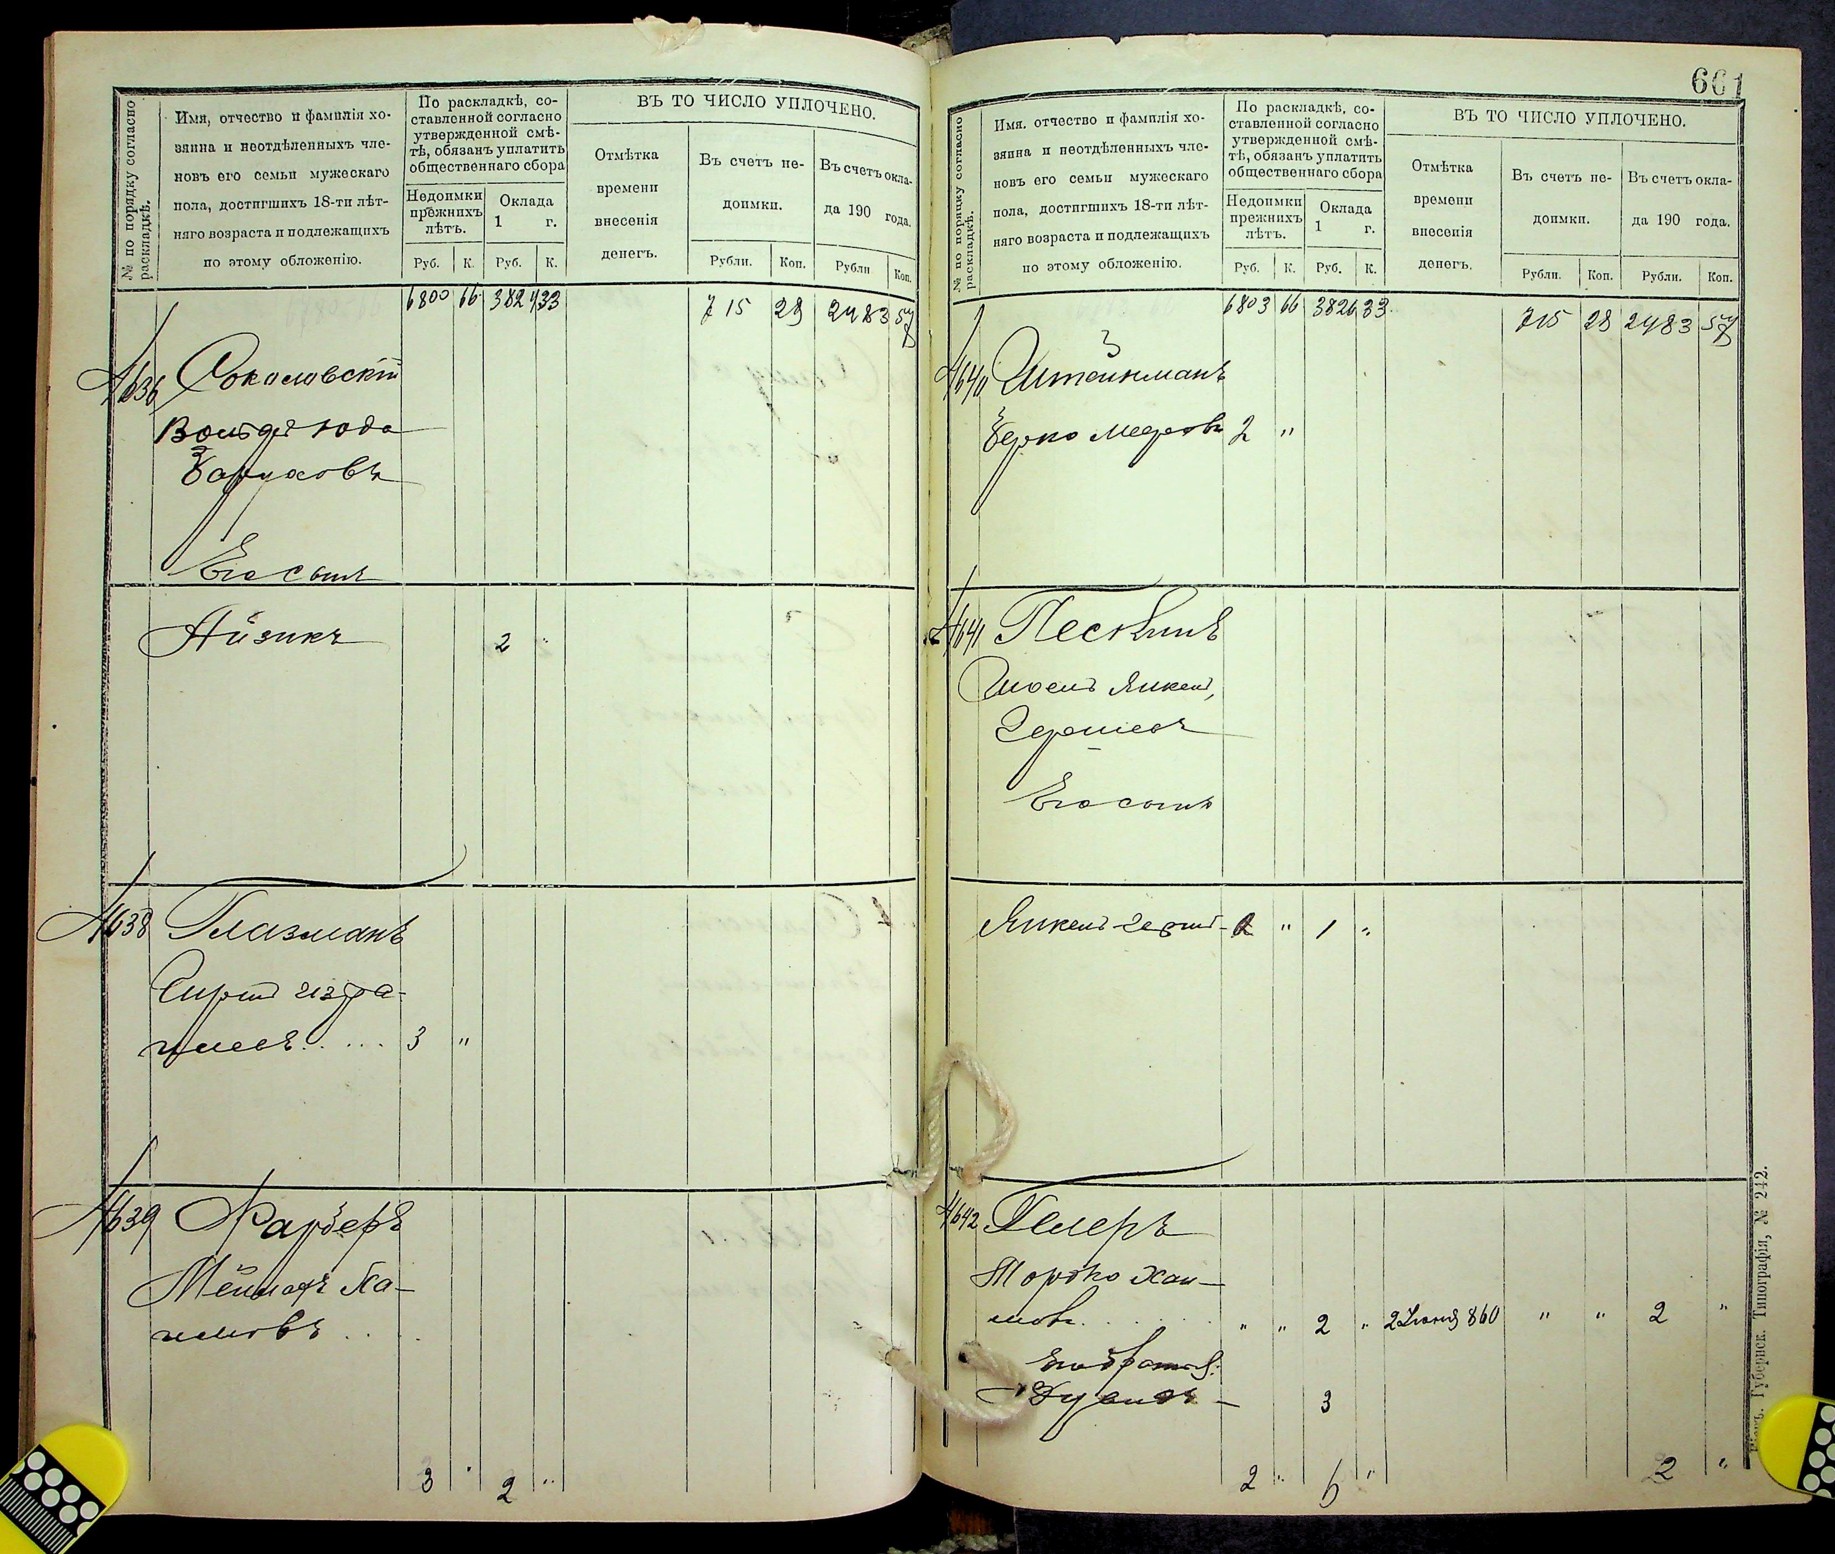 № по порядку согласно раскладкѣ.
Имя, отчество и фамилія хо-
зяина и неотдѣленныхъ чле-
новъ его семьи мужескаго
пола, достигшихъ 18-ти лѣт-
няго возраста и подлежащихъ
по этому обложенію.
По раскладкѣ, со-
ставленной согласно
утвержденной смѣ-
тѣ, обязанъ уплатить
общественнаго сбора
Недоимки
прежнихъ
лѣтъ.
Оклада
1 г.
Руб. К. Руб. К.
ВЪ ТО ЧИСЛО УПЛОЧЕНО.
Отмѣтка
времени
внесенія
денегъ.
Въ счетъ не-
доимки.
Въ счетъ окла-
да 190 года.
Рубли. Коп. Рубли Коп.
6800 66 382 33 715 28 2483 57
636 Соколовскій
Вольфъ Юда
Боруховъ
Его сынъ
Айзикъ 2 "
638 Глазманъ
3 "
639 Фарберъ
Ха-
имовъ . . .
3 " 2 "
661
№ по порядку согласно раскладкѣ.
Имя, отчество и фамилія хо-
зяина и неотдѣленныхъ чле-
новъ его семьи мужескаго
пола, достигшихъ 18-ти лѣт-
няго возраста и подлежащихъ
по этому обложенію.
По раскладкѣ, со-
ставленной согласно
утвержденной смѣ-
тѣ, обязанъ уплатить
общественнаго сбора
Недоимки
прежнихъ
лѣтъ.
Оклада
1 г.
Руб. К. Руб. К.
ВЪ ТО ЧИСЛО УПЛОЧЕНО.
Отмѣтка
времени
внесенія
денегъ.
Въ счетъ не-
доимки.
Въ счетъ окла-
да 190 года.
Рубли. Коп. Рубли. Коп.
6803 66 3826 33 715 28 2483 57
640 Штейнманъ
Берко Мееровъ 2 "
641 Пескинъ
Янкель
Гершовъ
Его сынъ
Янкель " 1 "
642 Гелеръ
Хаи-
мовъ . . . " " 2 " 2 Іюня 860 " " 2 "
Его братья:
3
2 " 2 "
Губернск. Типографія, № 242.